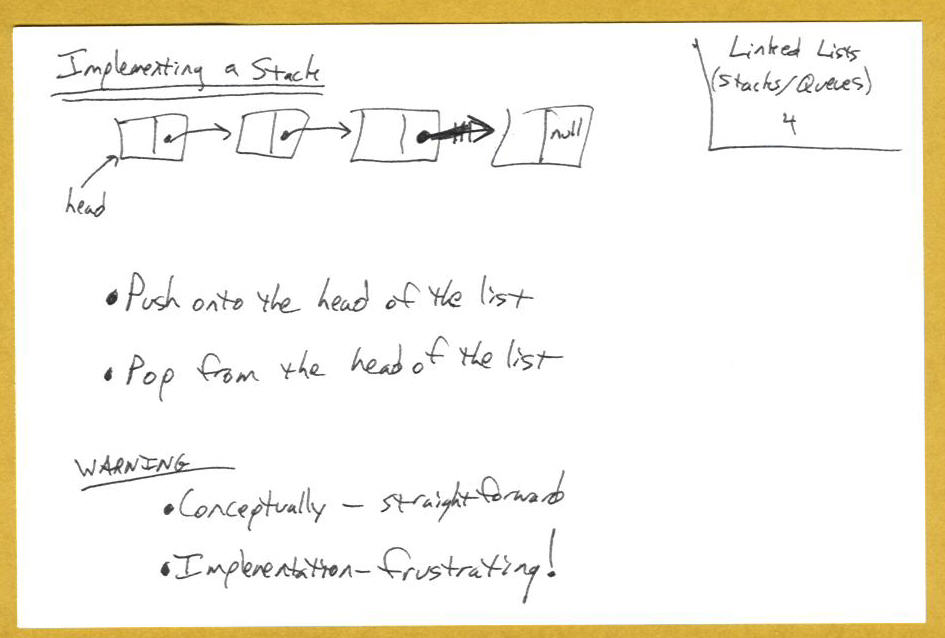 Implementing a Stack
Linked Lists
(Stacks/Queues)
4
null
head
• Push onto the head of the list
• Pop from the head of the list
WARNING
• Conceptually - straightforward
• Implementation - frustrating!